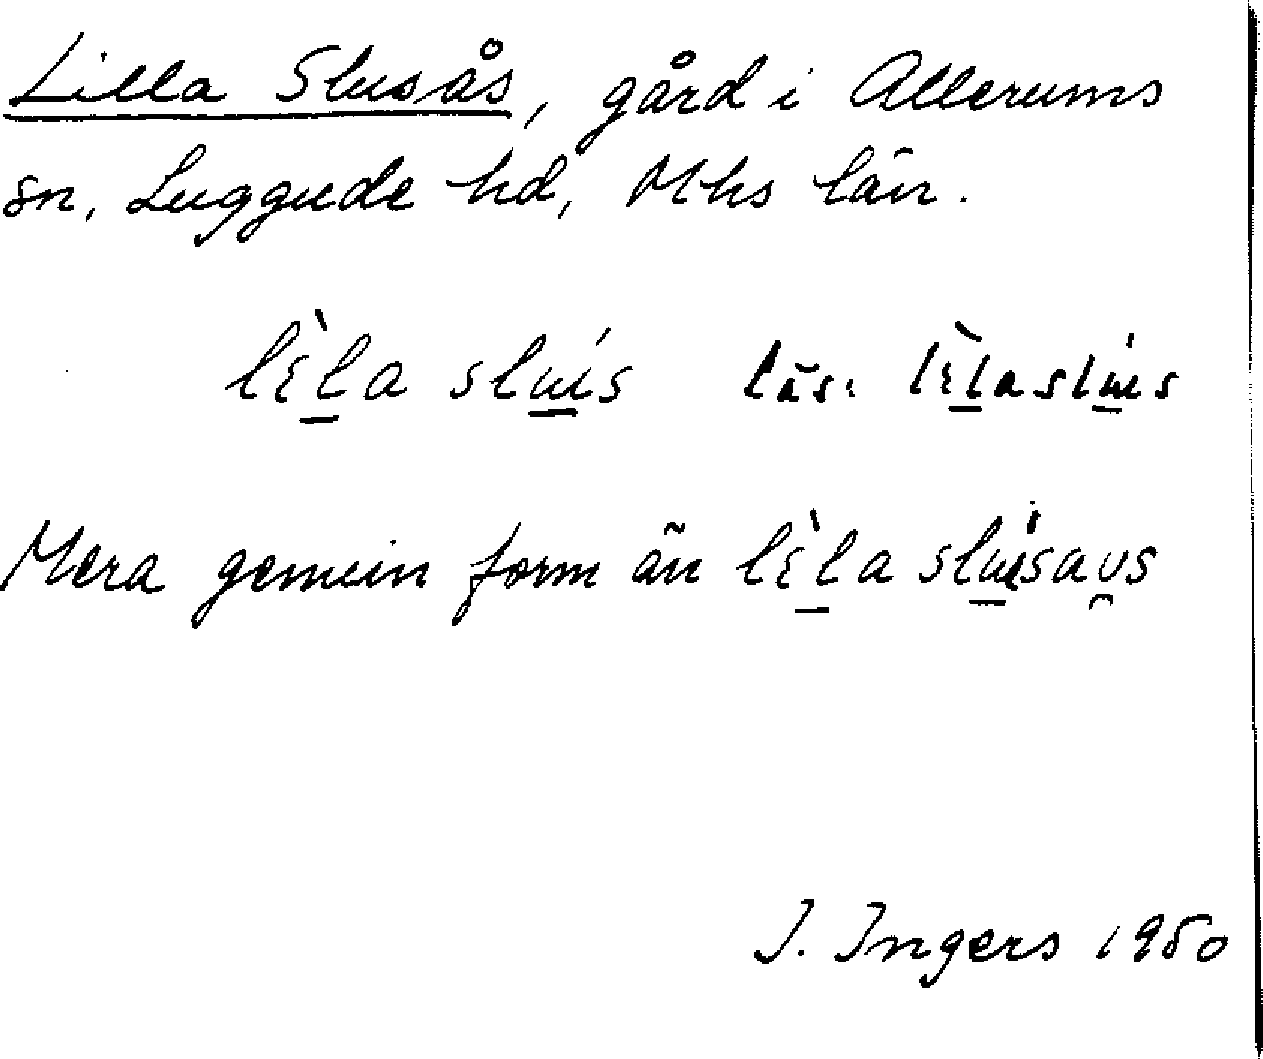 Lilla Slusås, gård i Allerums
sn, Luggude hd, Mhs län.
lὲl̠a slɯ̠́s läs: lὲl̠aslɯ̠́s
Mera gemein form än lὲl̠a slɯ̠́saʋ̯s
I. Ingers 1950